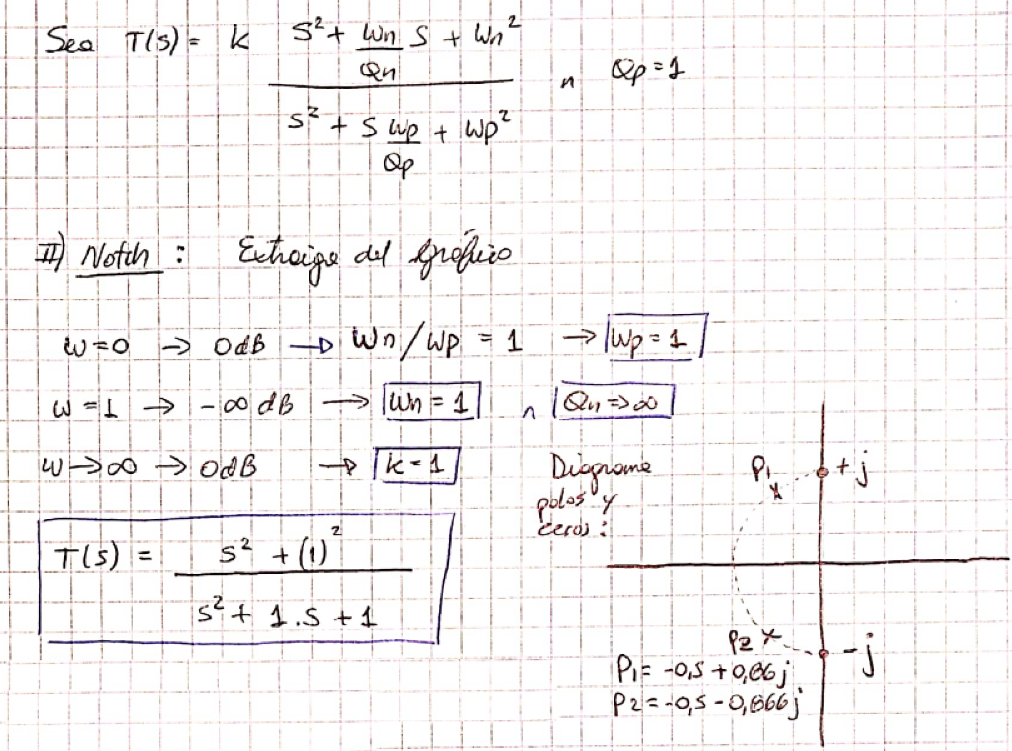 Sea T(s) = k (s² + Wn/Qn s + Wn²) / (s² + s Wp/Qp + Wp²) ∧ Qp = 1
II) Notch : Extraigo del gráfico
w=0 → 0dB → Wn/Wp = 1 → Wp = 1
w=1 → -∞ dB → Wn = 1 ∧ Qn => ∞
w→∞ → 0dB → k = 1
T(s) = (s² + (1)²) / (s² + 1.s + 1)
Diagrama
polos y
ceros :
P1
+j
P2
-j
P1 = -0,5 + 0,866j
P2 = -0,5 - 0,866j